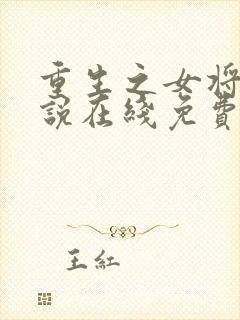 重生之女将
説在綫免費
王紅